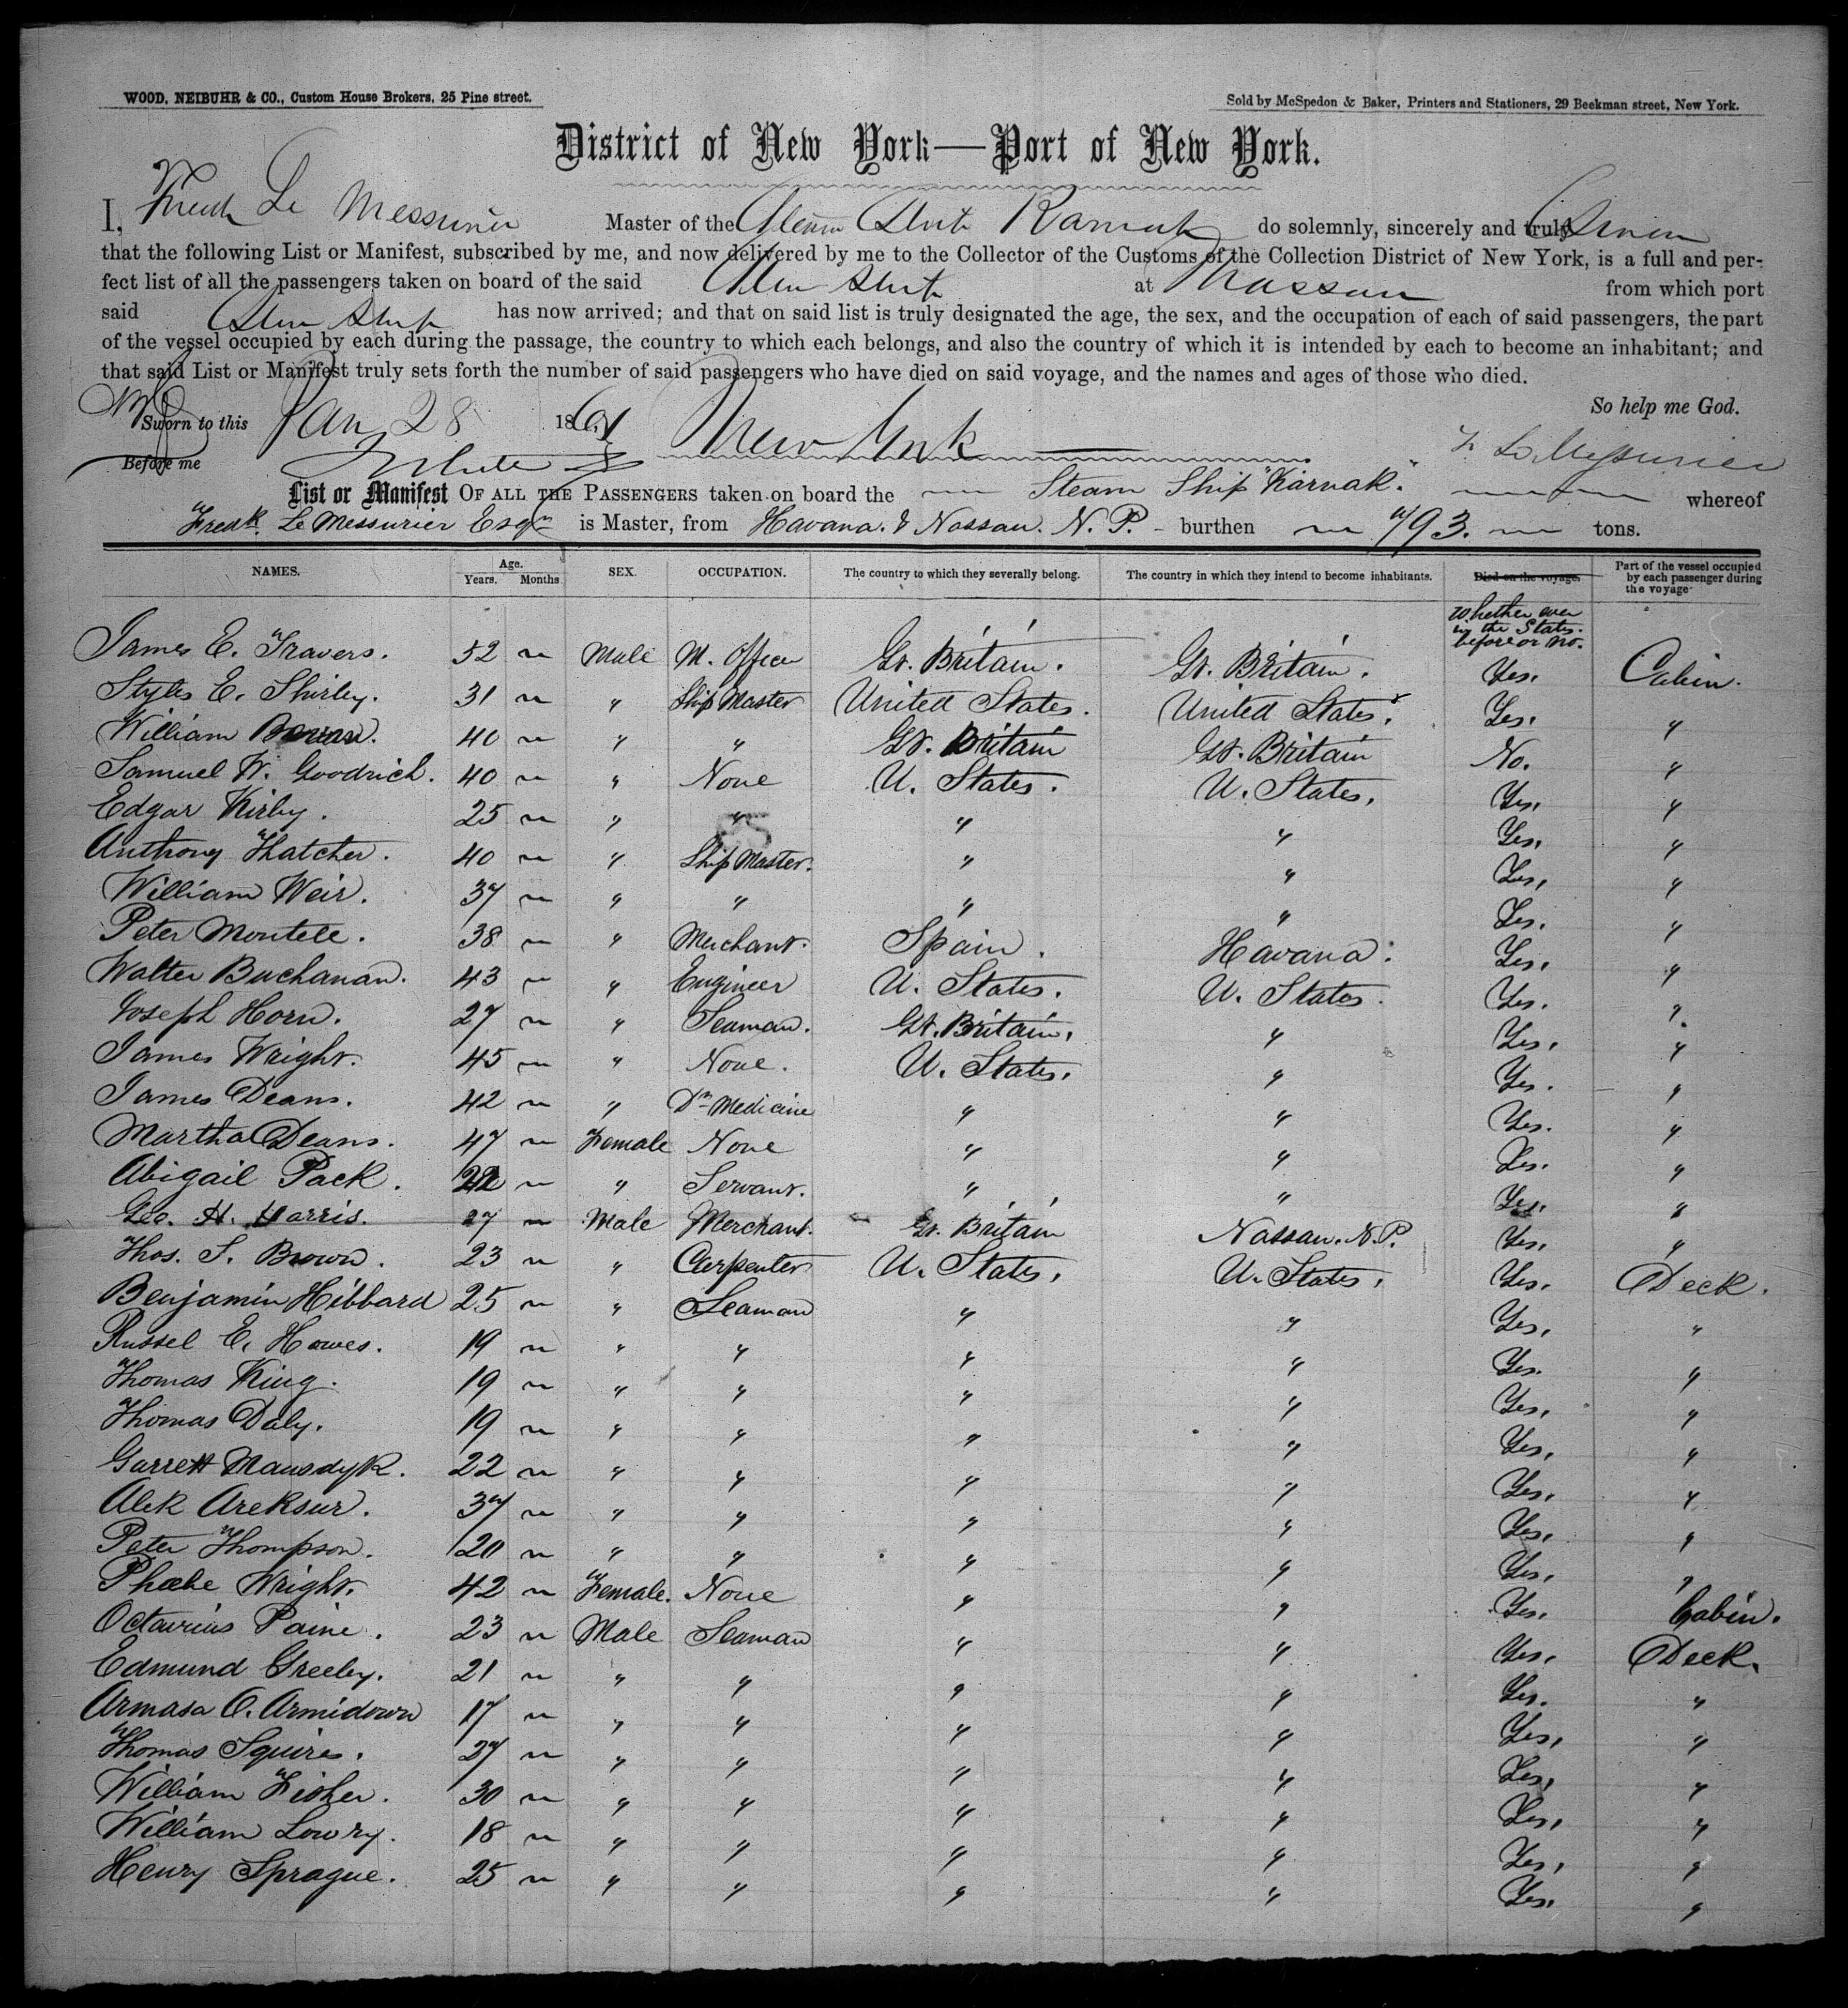 WOOD, NEIBUHR & CO., Custom House Brokers, 25 Pine street.
Sold by McSpedon & Baker, Printers and Stationers, 29 Beekman street, New York.
District of New York—Port of New York.
I, Le Messurier Master of the Steam Ship Karnak do solemnly, sincerely and truly Swear
that the following List or Manifest, subscribed by me, and now delivered by me to the Collector of the Customs of the Collection District of New York, is a full and per-
fect list of all the passengers taken on board of the said Steam Ship at Nassau from which port
said Steam Ship has now arrived; and that on said list is truly designated the age, the sex, and the occupation of each of said passengers, the part
of the vessel occupied by each during the passage, the country to which each belongs, and also the country of which it is intended by each to become an inhabitant; and
that said List or Manifest truly sets forth the number of said passengers who have died on said voyage, and the names and ages of those who died.
So help me God.
Sworn to this Jan 28 1861 New York
Before me F. Le Messurier
List or Manifest OF ALL THE PASSENGERS taken on board the Steam Ship "Karnak." whereof
Fredk. Le Messurier Esqr is Master, from Havana. & Nassau. N. P. - burthen 793. tons.
NAMES. Age. Years. Months SEX. OCCUPATION. The country to which they severally belong. The country in which they intend to become inhabitants. Died on the voyage. Part of the vessel occupied by each passenger during the voyage
Whether ever in the States. before or no.
James E. Travers. 52 ~ Male M. Officer Gt. Britain. Gt. Britain. Yes. Cabin.
Styles E. Shirley. 31 ~ " Ship Master United States. United States. Yes. "
William 40 ~ " " Gt. Britain Gt. Britain No. "
Samuel W. Goodrich. 40 ~ " None U. States. U. States. Yes. "
Edgar Kirby. 25 ~ " " " " Yes. "
Anthony Thatcher. 40 ~ " Ship Master. " " Yes. "
William Weir. 37 ~ " " " " Yes. "
Peter Montell. 38 ~ " Merchant. Spain. Havana. Yes. "
Walter Buchanan. 43 ~ " Engineer U. States. U. States. Yes. "
Joseph Horn. 27 ~ " Seaman. Gt. Britain. " Yes. "
James Wright. 45 ~ " None. U. States. " Yes. "
James Deans. 42 ~ " Dr Medicine " " Yes. "
Martha Deans. 47 ~ Female None " " Yes. "
Abigail Pack. 22 ~ " Servant. " " Yes. "
Geo. H. Harris. 27 ~ Male Merchant. Gt. Britain Nassau. N.P. Yes. "
Thos. S. Brown. 23 ~ " Carpenter U. States. U. States. Yes. Deck.
Benjamin Hibbard 25 ~ " Seaman " " Yes. "
Russel E. Howes. 19 ~ " " " " Yes. "
Thomas King. 19 ~ " " " " Yes. "
Thomas Daly. 19 ~ " " " " Yes. "
Garrett Mansdyk. 22 ~ " " " " Yes. "
Alek Areksur. 37 ~ " " " " Yes. "
Peter Thompson. 20 ~ " " " " Yes. "
Phoebe Wright. 42 ~ Female. None " " Yes. Cabin.
Octavius Paine. 23 ~ Male Seaman " " Yes. Deck.
Edmund Greeley. 21 ~ " " " " Yes. "
Armasa O. Armidown 17 ~ " " " " Yes. "
Thomas Squires. 27 ~ " " " " Yes. "
William Fisher. 30 ~ " " " " Yes. "
William Lowry. 18 ~ " " " " Yes. "
Henry Sprague. 25 ~ " " " " Yes. "